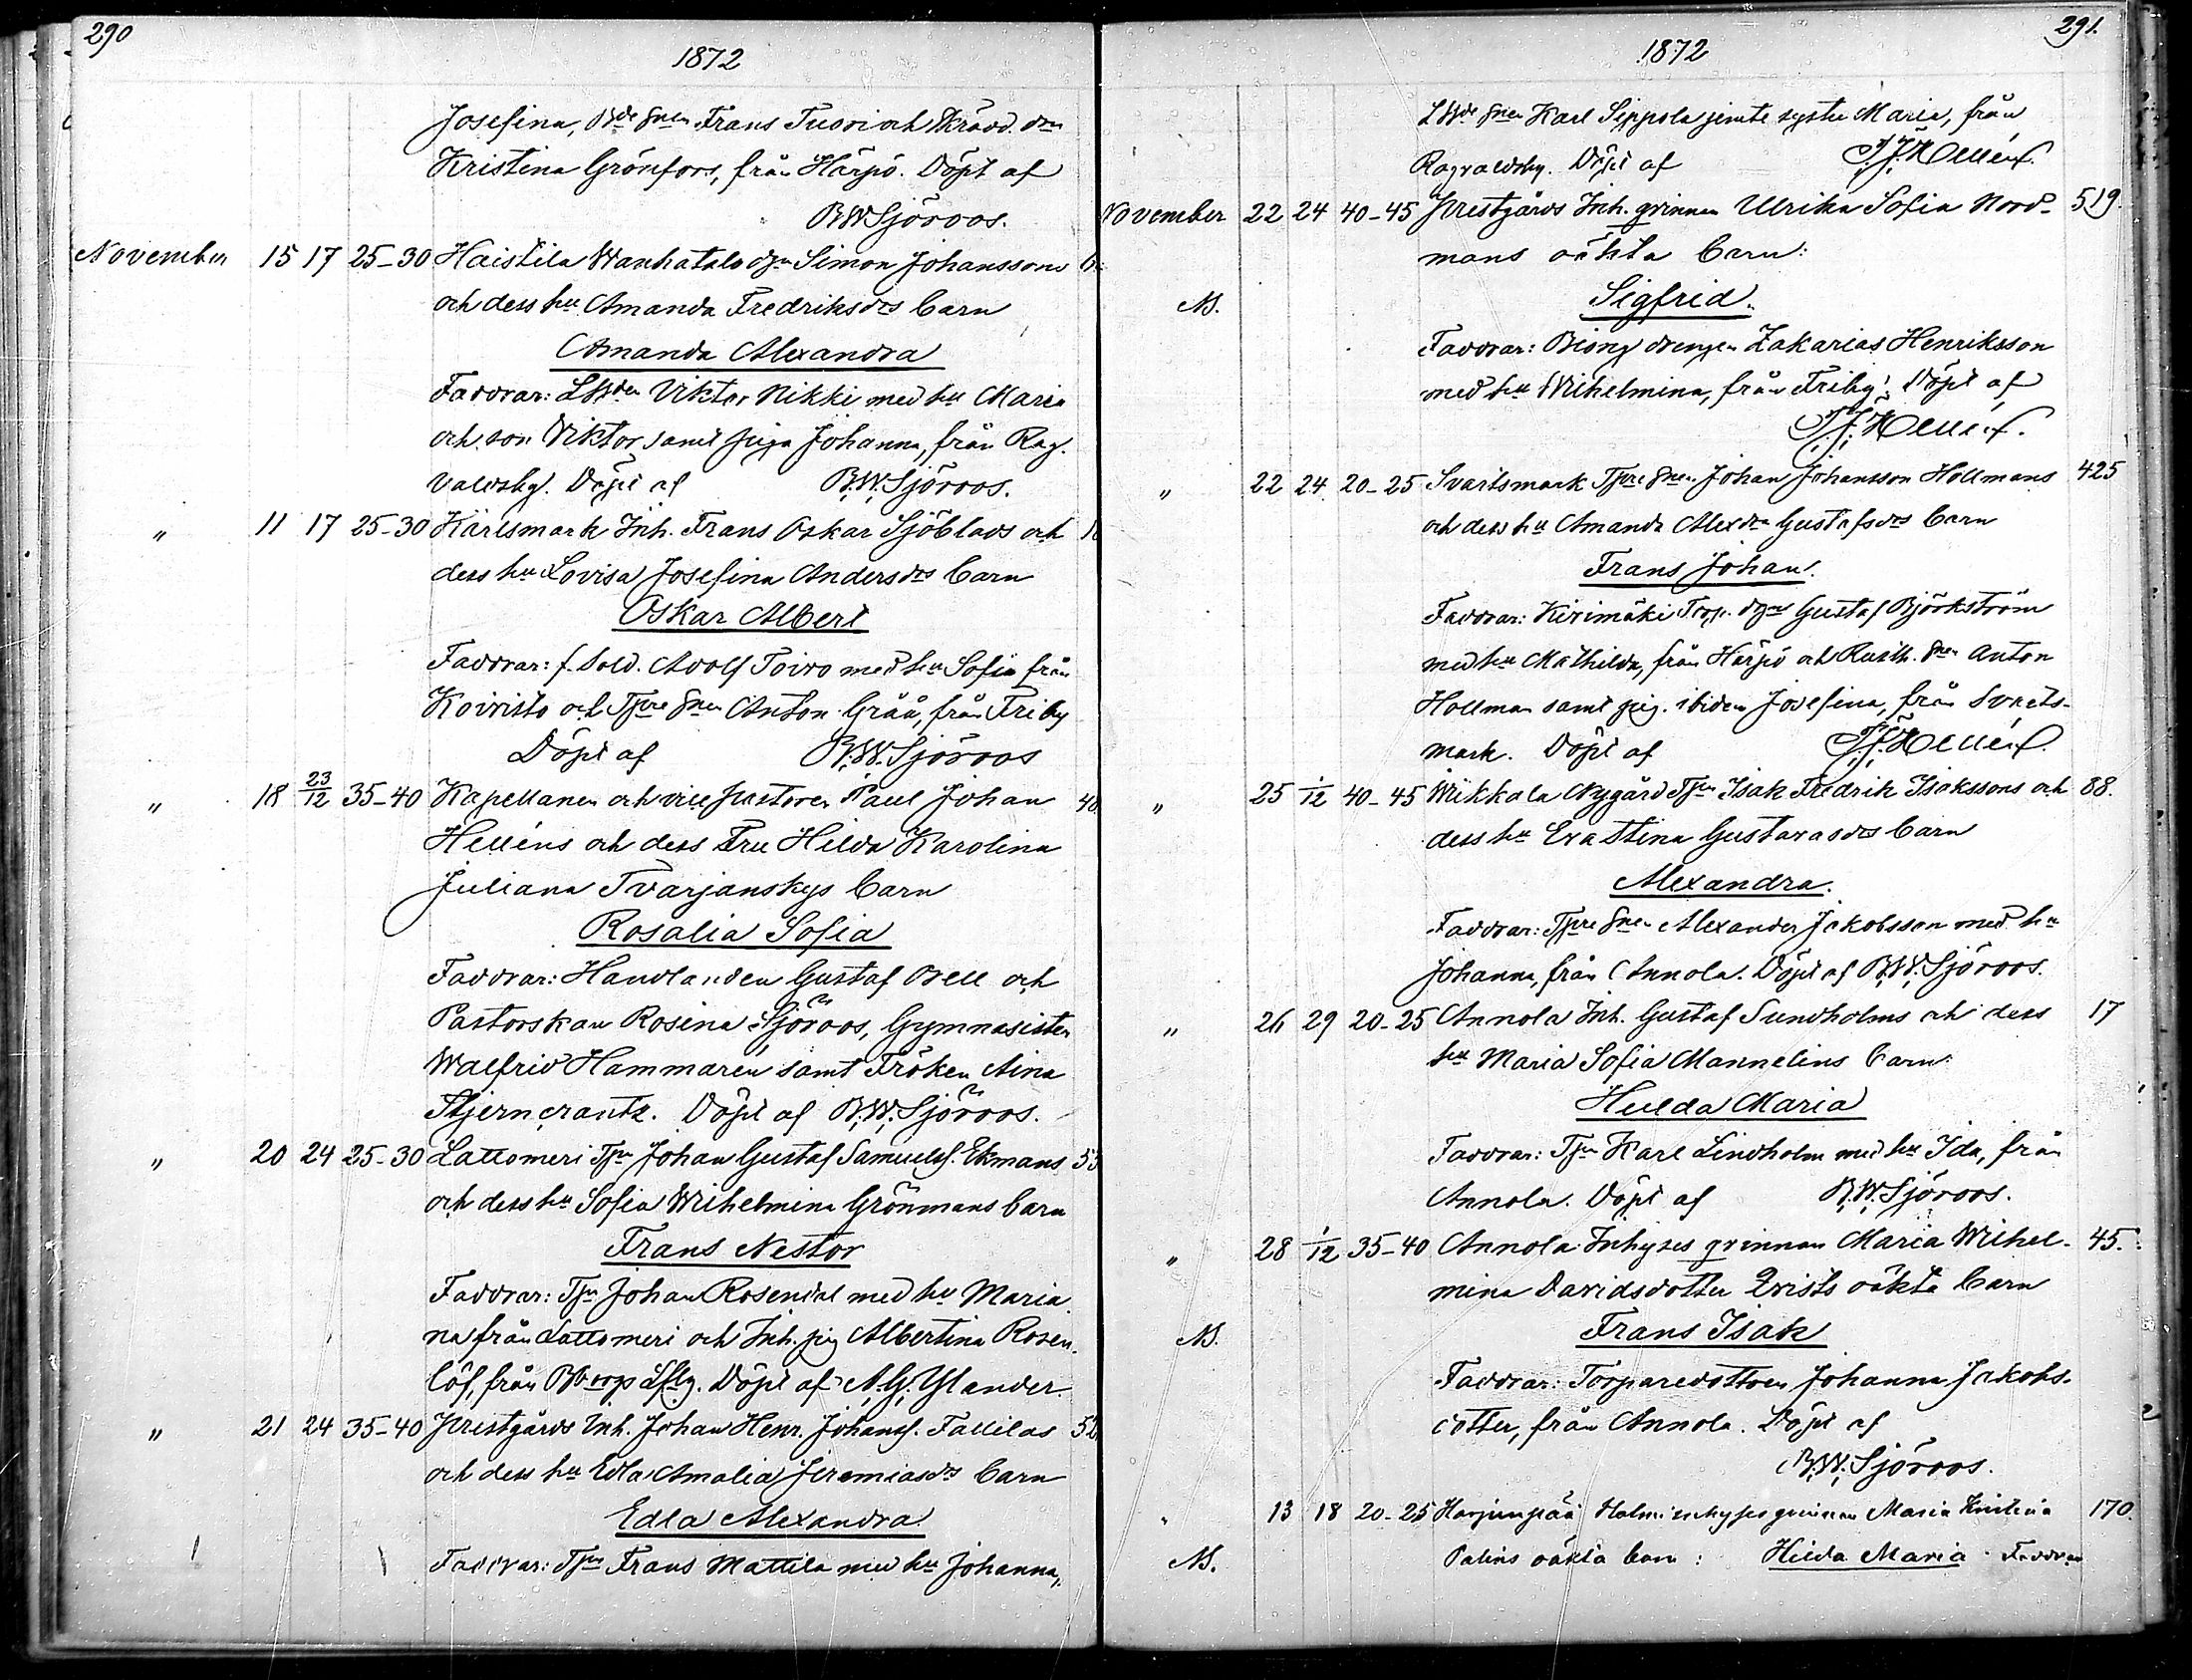 290
1872
Josefina, Frans Tuori och
Kristina Grönfors, från Härpö. Döpt af
B.W. Sjöroos.
November 15 17 25-30 Haistila Wanhatalo Simon Johanssons
och dess hu Amanda Fredriksdrs barn
Amanda Alexandra
Faddrar: Viktor Nikki med hu Maria
och son Viktor samt piga Johanna, från Rag-
valdsby. Döpt af B.W. Sjöroos.
" 11 17 25-30 Härlsmark Inh. Frans Oskar Sjöblads och
dess hu Lovisa Josefina Andersdrs barn
Oskar Albert
Faddrar: f. Sold. Adolf Toivo med hu Sofia från
Koivisto och Anton Gråå, från Friby
Döpt af B.W. Sjöroos
" 18 23/12 35-40 Kapellanen och vice pastoren Paul Johan 40.
Helléns och dess Fru Hilda Karolina
Juliana Tvarjanskys barn
Rosalia Sofia
Faddrar: Handlanden Gustaf Orell och
Pastorskan Rosina Sjöroos, Gymnasisten
Walfrid Hammarén samt Fröken Aina
Stjerncrantz. Döpt af B.W. Sjöroos.
" 20 24 25-30 Lattomeri Tjn Johan Gustaf Samuelss. Ekmans
och dess hu Sofia Wilhelmina Grönmans barn
Frans Nestor
Faddrar: Tjn Johan Rosendal med hu Maria
na från Lattomeri och Inh. pig Albertina Rosen-
löf, från Döpt af A.G. Ylander
" 21 24 35-40 Prestgårds Inh. Johan Henr. Johanss. Fallilas
och dess hu Edla Amalia Jeremiasdr barn
Edla Alexandra
Faddrar: Tjn Frans Mattila med hu Johanna,
291.
1872
Karl Sippola jemte syster Maria, från
Ragvaldsby. Döpt af P.J. Hellén.
November 22 24 40-45 Prestgårds Inh. qvinnan Ulrika Sofia Nord- 519.
mans oäkta barn:
N.
Sigfrid.
Faddrar: drengen Zakarias Henriksson
med hu Wilhelmina, från Friby. Döpt af
P.J. Hellén.
" 22 24 20-25 Svartsmark Johan Johansson Hollmans 425
och dess hu Amanda Alexdra Gustafsdrs barn
Frans Johan.
Faddrar: Kivimäki Torp. Gustaf Björkström
med hu Mathilda, från Härpö och Rusth. Anton
Hollman samt pig. ibidem Josefina, från Svarts-
mark. Döpt af P.J. Hellén.
" 25 1/12 40-45 Wikkala Nygård Tjn Isak Fredrik Isakssons och 88.
dess hu Eva Stina Gustavasdrs barn
Alexandra.
Faddrar: Alexander Jakobsson med hu
Johanna, från Annola. Döpt af B.W. Sjöroos.
" 26 29 20-25 Annola Inh. Gustaf Sundholms och dess 17
hu Maria Sofia Mannelins barn
Hulda Maria
Faddrar: Tjn Karl Lindholm med hu Ida, från
Annola. Döpt af B.W. Sjöroos.
" 28 1/12 35-40 Annola Inhyses qvinnan Maria Wilhel- 45.
mina Davidsdotter Qvists oäkta barn
N.
Frans Isak
Faddrar: Torparedottren Johanna Jakobs-
dotter, från Annola. Döpt af
B.W. Sjöroos.
" 13 18 20-25 Harjunpää Holmi inhyses qvinnan Maria Kristina 170.
N. Palins oäkta barn: Hilda Maria. Faddrar